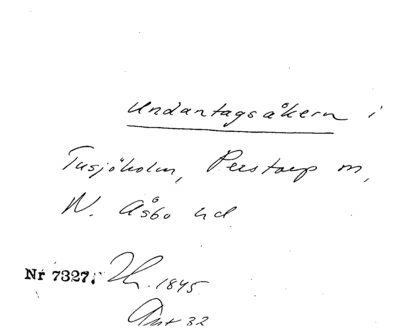 Undantagsåkern i
Tusjöholm, Perstorp m,
N. Åsbo hd
Nr 7327. Th. 1845
Ant 32